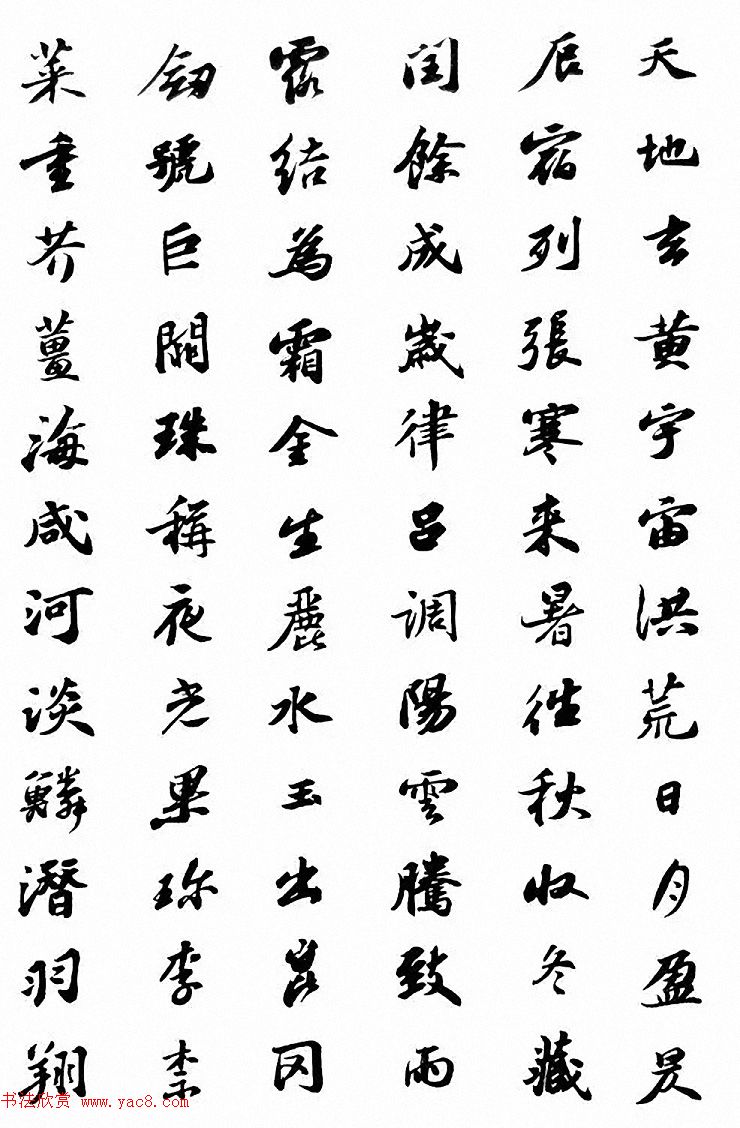 天地玄黃宇宙洪荒日月盈昃
辰宿列張寒来暑往秋收冬藏
閏餘成歲律呂調陽雲騰致雨
露結為霜金生麗水玉出崑岡
劒號巨闕珠稱夜光果珎李柰
菜重芥薑海咸河淡鱗潛羽翔
书法欣赏 www.yac8.com